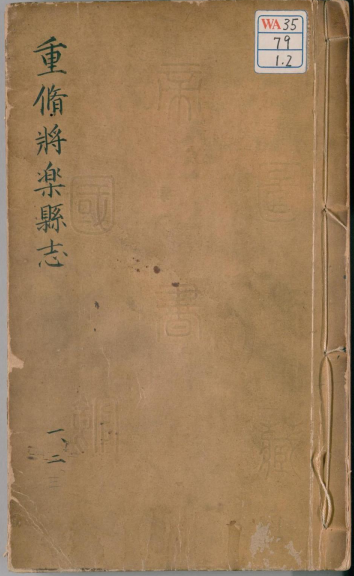 WA35
79
1.2
重脩將楽縣志
一、二